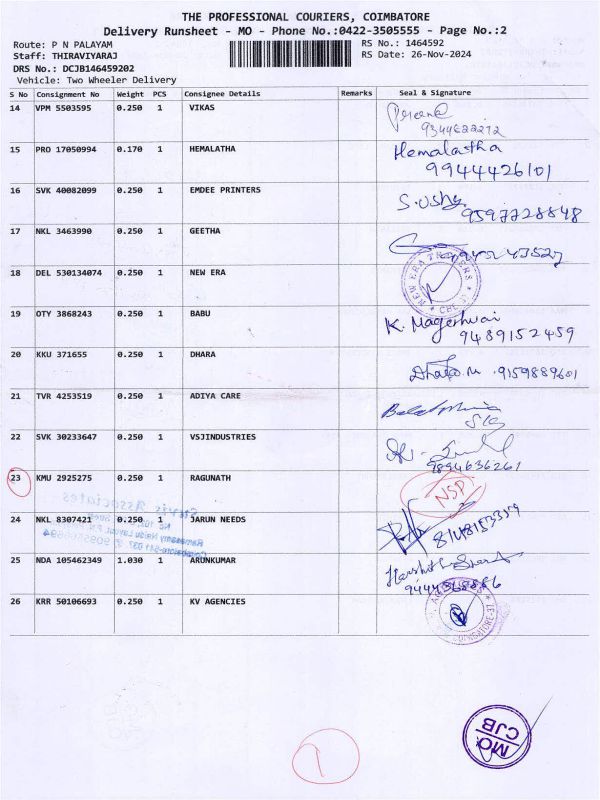 THE PROFESSIONAL COURIERS, COIMBATORE
Delivery Runsheet - MO - Phone No.:0422-3505555 - Page No.:2
Route: P N PALAYAM RS No.: 1464592
Staff: THIRAVIYARAJ RS Date: 26-Nov-2024
DRS No.: DCJB146459202
Vehicle: Two Wheeler Delivery
S No Consignment No Weight PCS Consignee Details Remarks Seal & Signature
14 VPM 5503595 0.250 1 VIKAS
9344622272
15 PRO 17050994 0.170 1 HEMALATHA Hemalatha
9944426101
16 SVK 40082099 0.250 1 EMDEE PRINTERS S. Usha
9597728848
17 NKL 3463990 0.250 1 GEETHA
18 DEL 530134074 0.250 1 NEW ERA
NEW ERA
19 OTY 3868243 0.250 1 BABU K. Mageshwari
9489152459
20 KKU 371655 0.250 1 DHARA
9159889601
21 TVR 4253519 0.250 1 ADIYA CARE
22 SVK 30233647 0.250 1 VSJINDUSTRIES
9894636261
23 KMU 2925275 0.250 1 RAGUNATH NSP
24 NKL 8307421 0.250 1 JARUN NEEDS
25 NDA 105462349 1.030 1 ARUNKUMAR
9444368886
26 KRR 50106693 0.250 1 KV AGENCIES
1
MO.
CJB